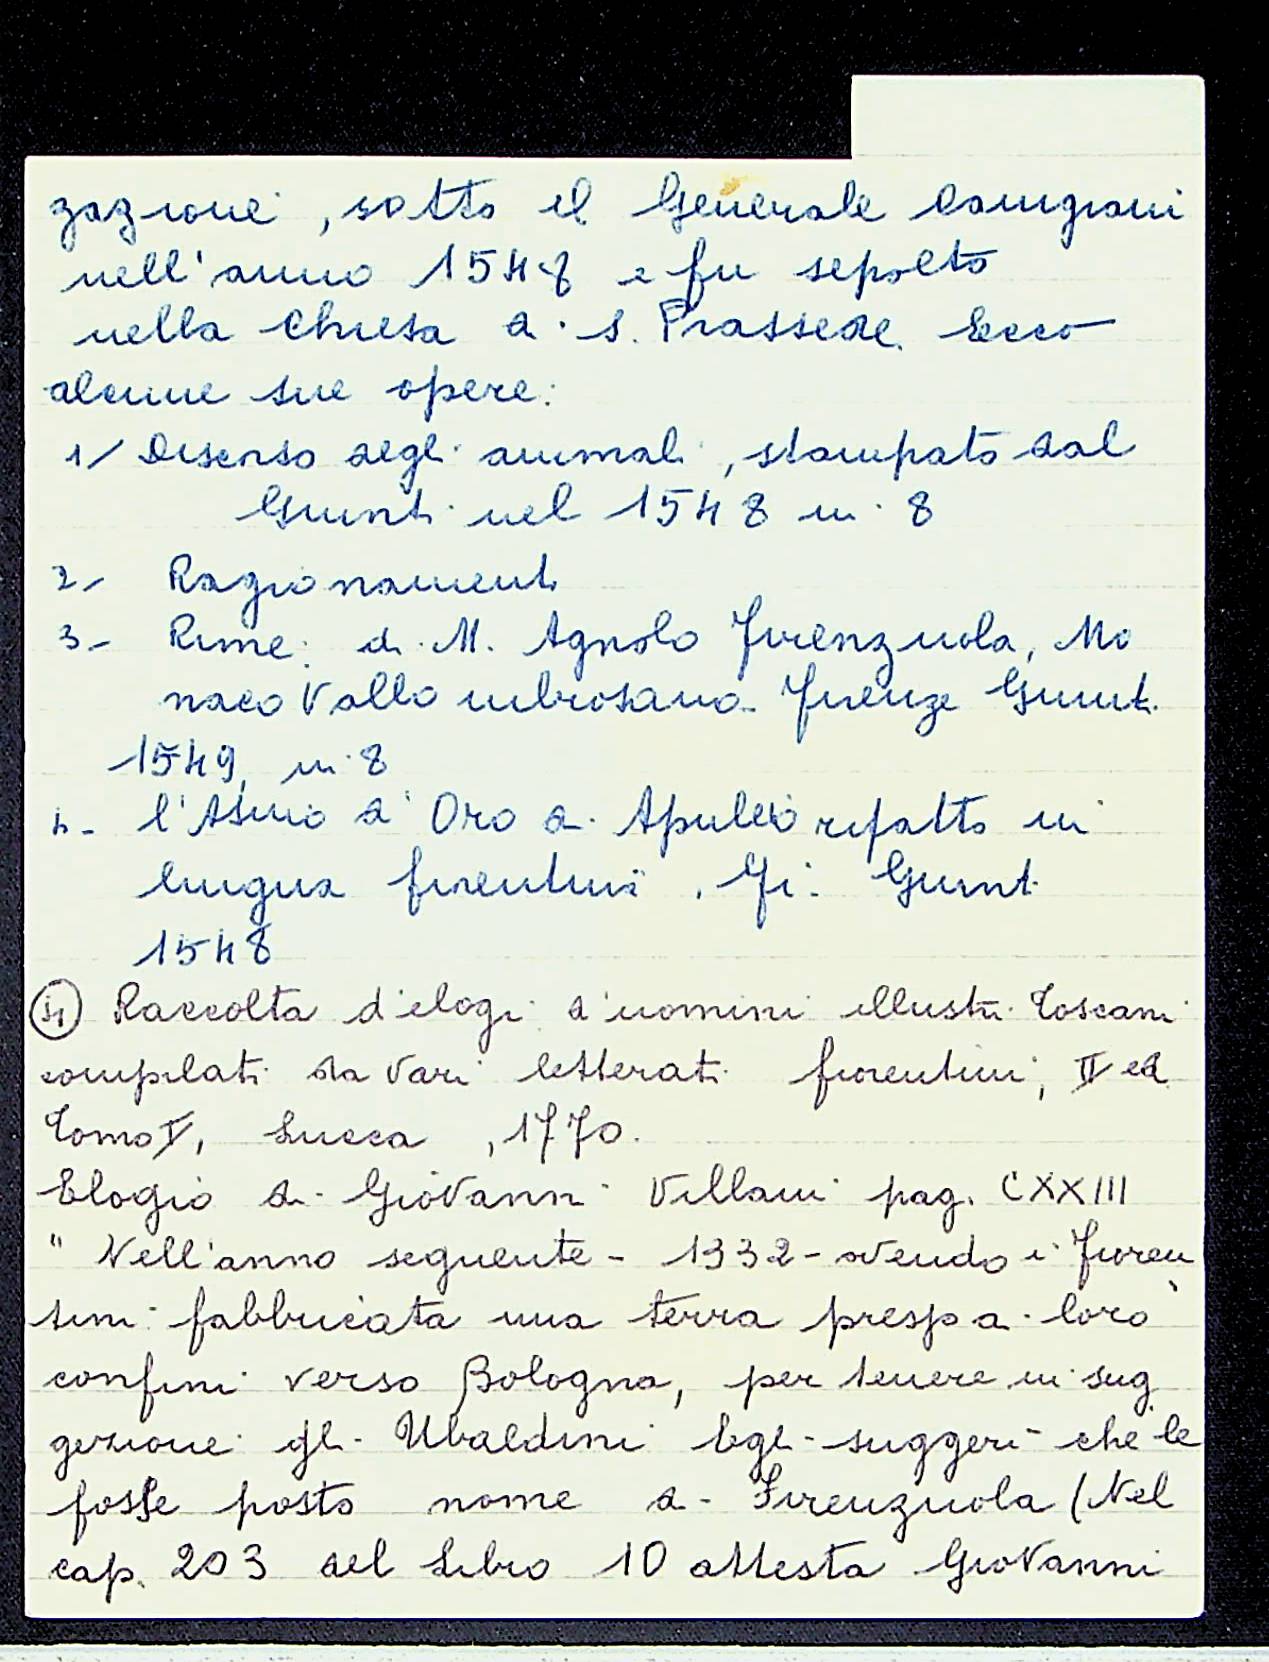 zazione, sotto il Generale Camgiani
nell'anno 1548 e fu sepolto
nella Chiesa di S. Prassede. Ecco
alcune sue opere:
1/ Discorso degli animali, stampato dal
Giunti nel 1548 in 8
2- Ragionamenti
3- Rime: di M. Agnolo Firenzuola, Mo
naco Vallo umbrosano. Firenze Giunti
1549, in 8
4- l'Asino d'Oro di Apuleio rifatto in
lingua fiorentina, Fi: Giunti
1548
(4) Raccolta d'elogi d'uomini illustri Toscani
compilati da vari letterati fiorentini, II ed
Tomo V, Lucca, 1770.
Elogio di Giovanni Villani pag. CXXIII
" Nell'anno seguente - 1332 - avendo i Fioren
tini fabbricata una terra presso a' loro
confini verso Bologna, per tenere in sug
gezione gli Ubaldini Egli suggerì che le
fosse posto nome di Firenzuola (Nel
cap. 203 del Libro 10 attesta Giovanni